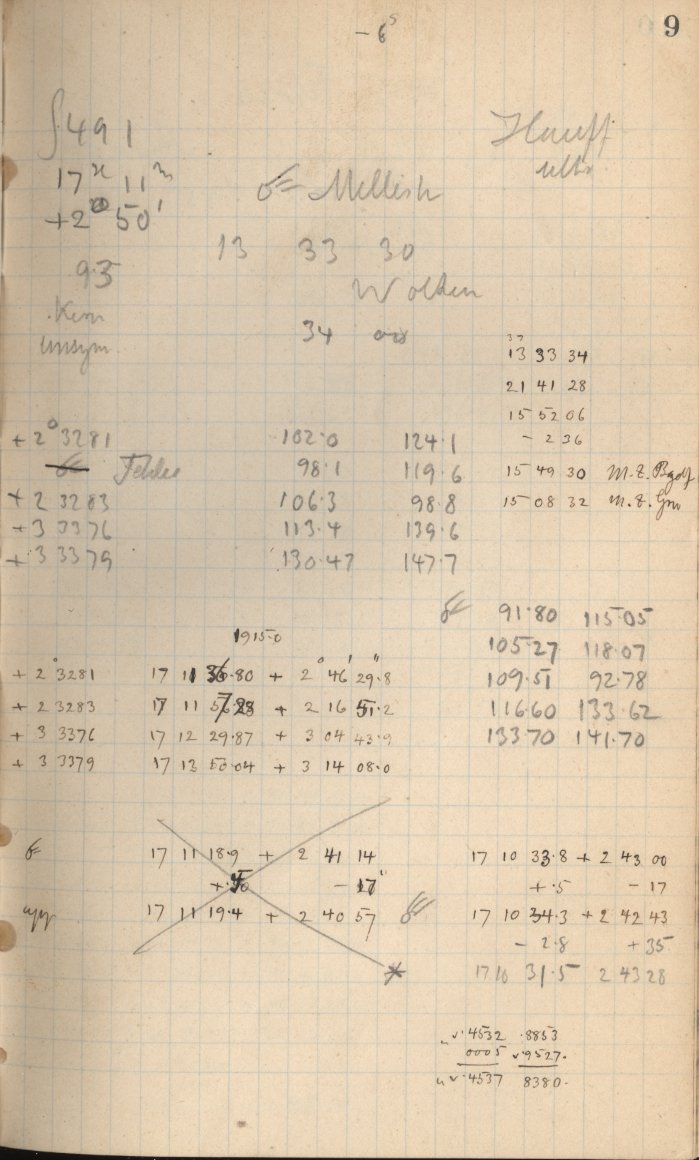 9
- 6ˢ
491
Hauff
17ʰ 11ᵐ
ultr.
+2° 50'
☄ Mellish
13 33 30
9.5
Wolken
Kern
34
unsym.
13 33 34
21 41 28
15 52 06
+ 2° 3281 102.0 124.1 - 2 36
☄ Fehler 98.1 119.6 15 49 30 M.Z.
+ 2 3283 106.3 98.8 15 08 32 M.Z.
+ 3 3376 113.4 139.6
+ 3 3379 130.47 147.7
☄ 91.80 115.05
1915.0
105.27 118.07
+ 2° 3281 17 11 36.80 + 2° 46' 29."8 109.51 92.78
+ 2 3283 17 11 57.28 + 2 16 51.2 116.60 133.62
+ 3 3376 17 12 29.87 + 3 04 43.9 133.70 141.70
+ 3 3379 17 13 50.04 + 3 14 08.0
☄ 17 11 18.9 + 2 41 14 17 10 33.8 + 2 43 00
- 17" + .5 - 17
app 17 11 19.4 + 2 40 57 ☄ 17 10 34.3 + 2 42 43
- 2.8 + 35
17 10 31.5 2 43 28
.4532 .8853
0005 .9527
.4537 8380